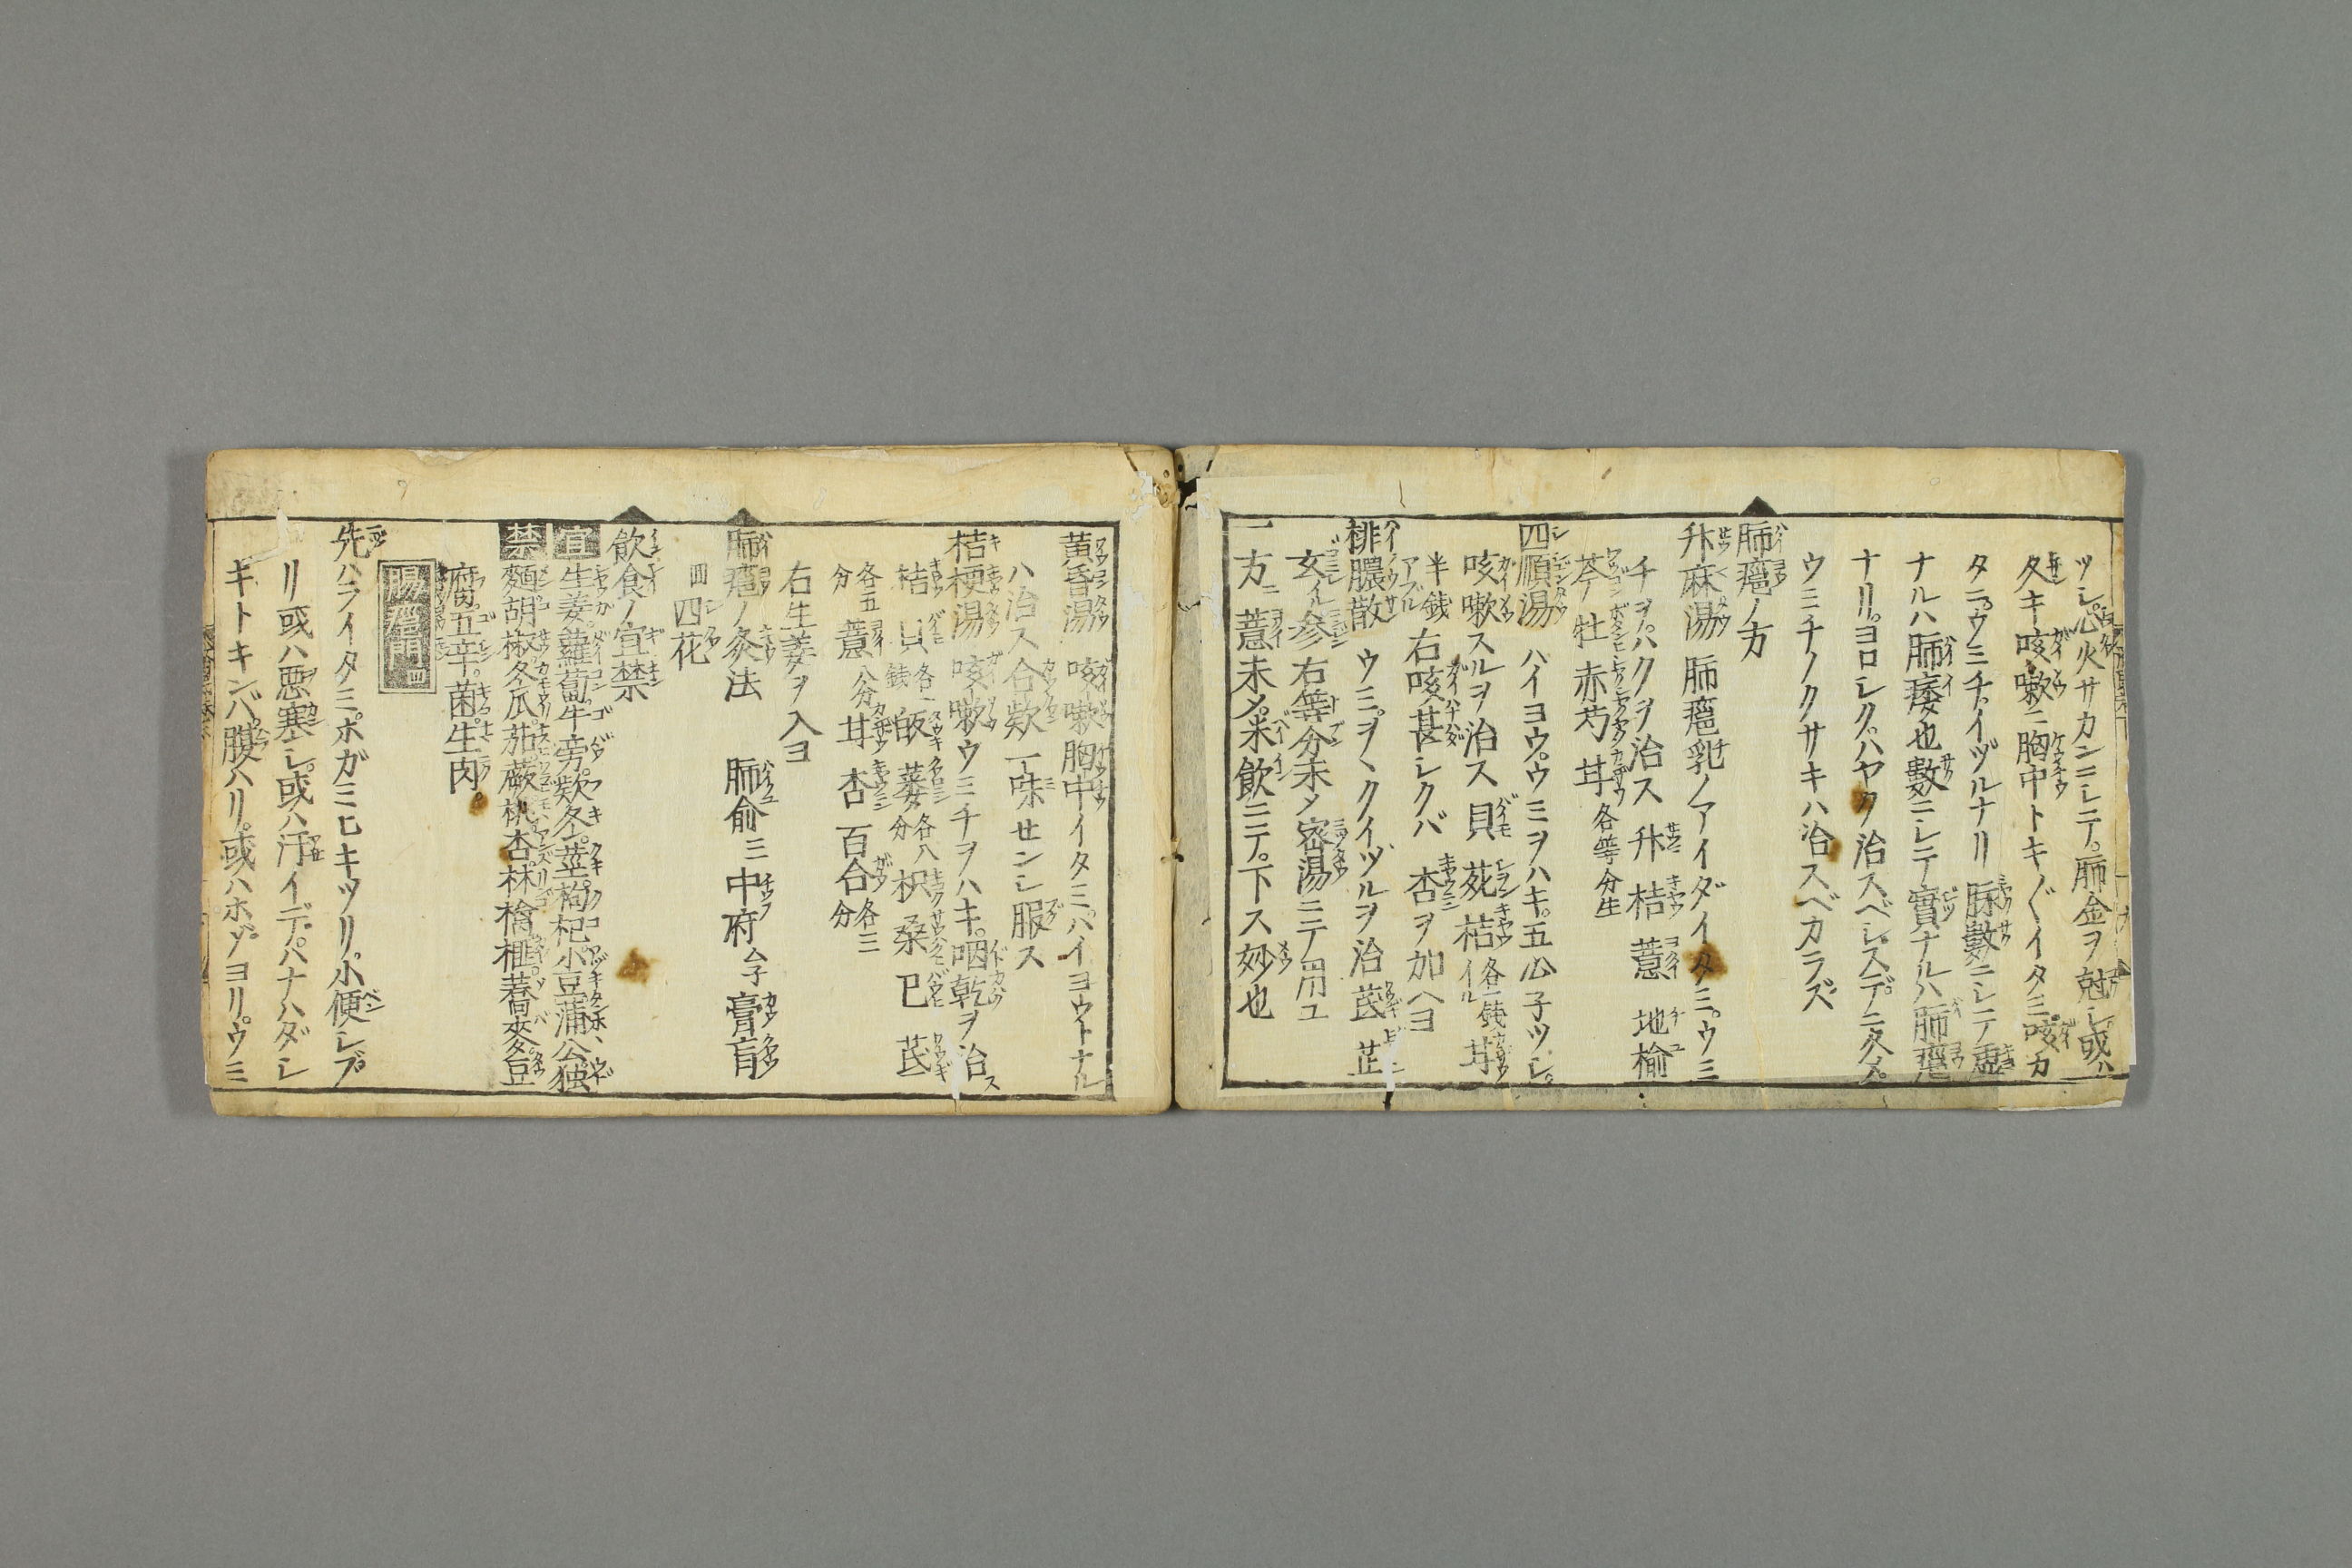 ツシ。心火サカンニシテ。肺金ヲ尅シ。或ハ
タキ咳嗽ニ胸中トキ〲イタミ。咳カ
タニ。ウミチ。イヅルナリ 脉數ニシテ虚
ナルハ肺痿也數ニシテ實ナルハ肺癰
ナリ。ヨロシク。ハヤク治スベシ。スデニ久ク。
ウミチノクサキハ治スベカラズ
肺癰ノ方
升麻湯 肺癰乳ノアイダイタミ。ウミ
チヲ。ハクヲ治ス 升 桔 薏 地榆
芩 牡 赤芍 甘 各等分生
四順湯 ハイヨウ。ウミヲハキ。五心子ツシ。
咳嗽スルヲ治ス 貝 菀 桔 各一銭 甘
半銭 アブル 右咳甚シクバ 杏ヲ加ヘヨ
排膿散 ウミ。ヲヽクイヅルヲ治 茋 芷
玄 参 右等分末メ密湯ニテ用ユ
一方ニ 薏末メ。米飲ニテ。下ス妙也
黄昏湯 咳嗽胸中イタミ。ハイヨウトナル
ハ治ス合歓一味せンシ服ス
桔梗湯 咳嗽ウミチヲハキ。咽乾ヲ治ス
桔 貝 各一銭 蔞 各八分 枳 桑 已 茋
各五分 薏 八分 甘 杏 百合 各三分
右生姜ヲ入ヨ
肺癰ノ灸法 肺俞 三 中府 膏肓
四花
飲食ノ宜禁
宜 生姜。蘿蔔。牛旁。欵冬。莖。枸杞。小豆。蒲公。独
禁 麺。胡椒。冬瓜。茄。蕨。桃。杏。林檎。榧。蕎麥。豆
腐。五辛。菌。生肉。
腸癰門 四
先ハライタミ。ホガミヒキツリ。小便シブ
リ或ハ悪寒シ。或ハ汗イデ。ハナハダシ
キトキンバ。腹ハリ。或ハホゾヨリ。ウミ